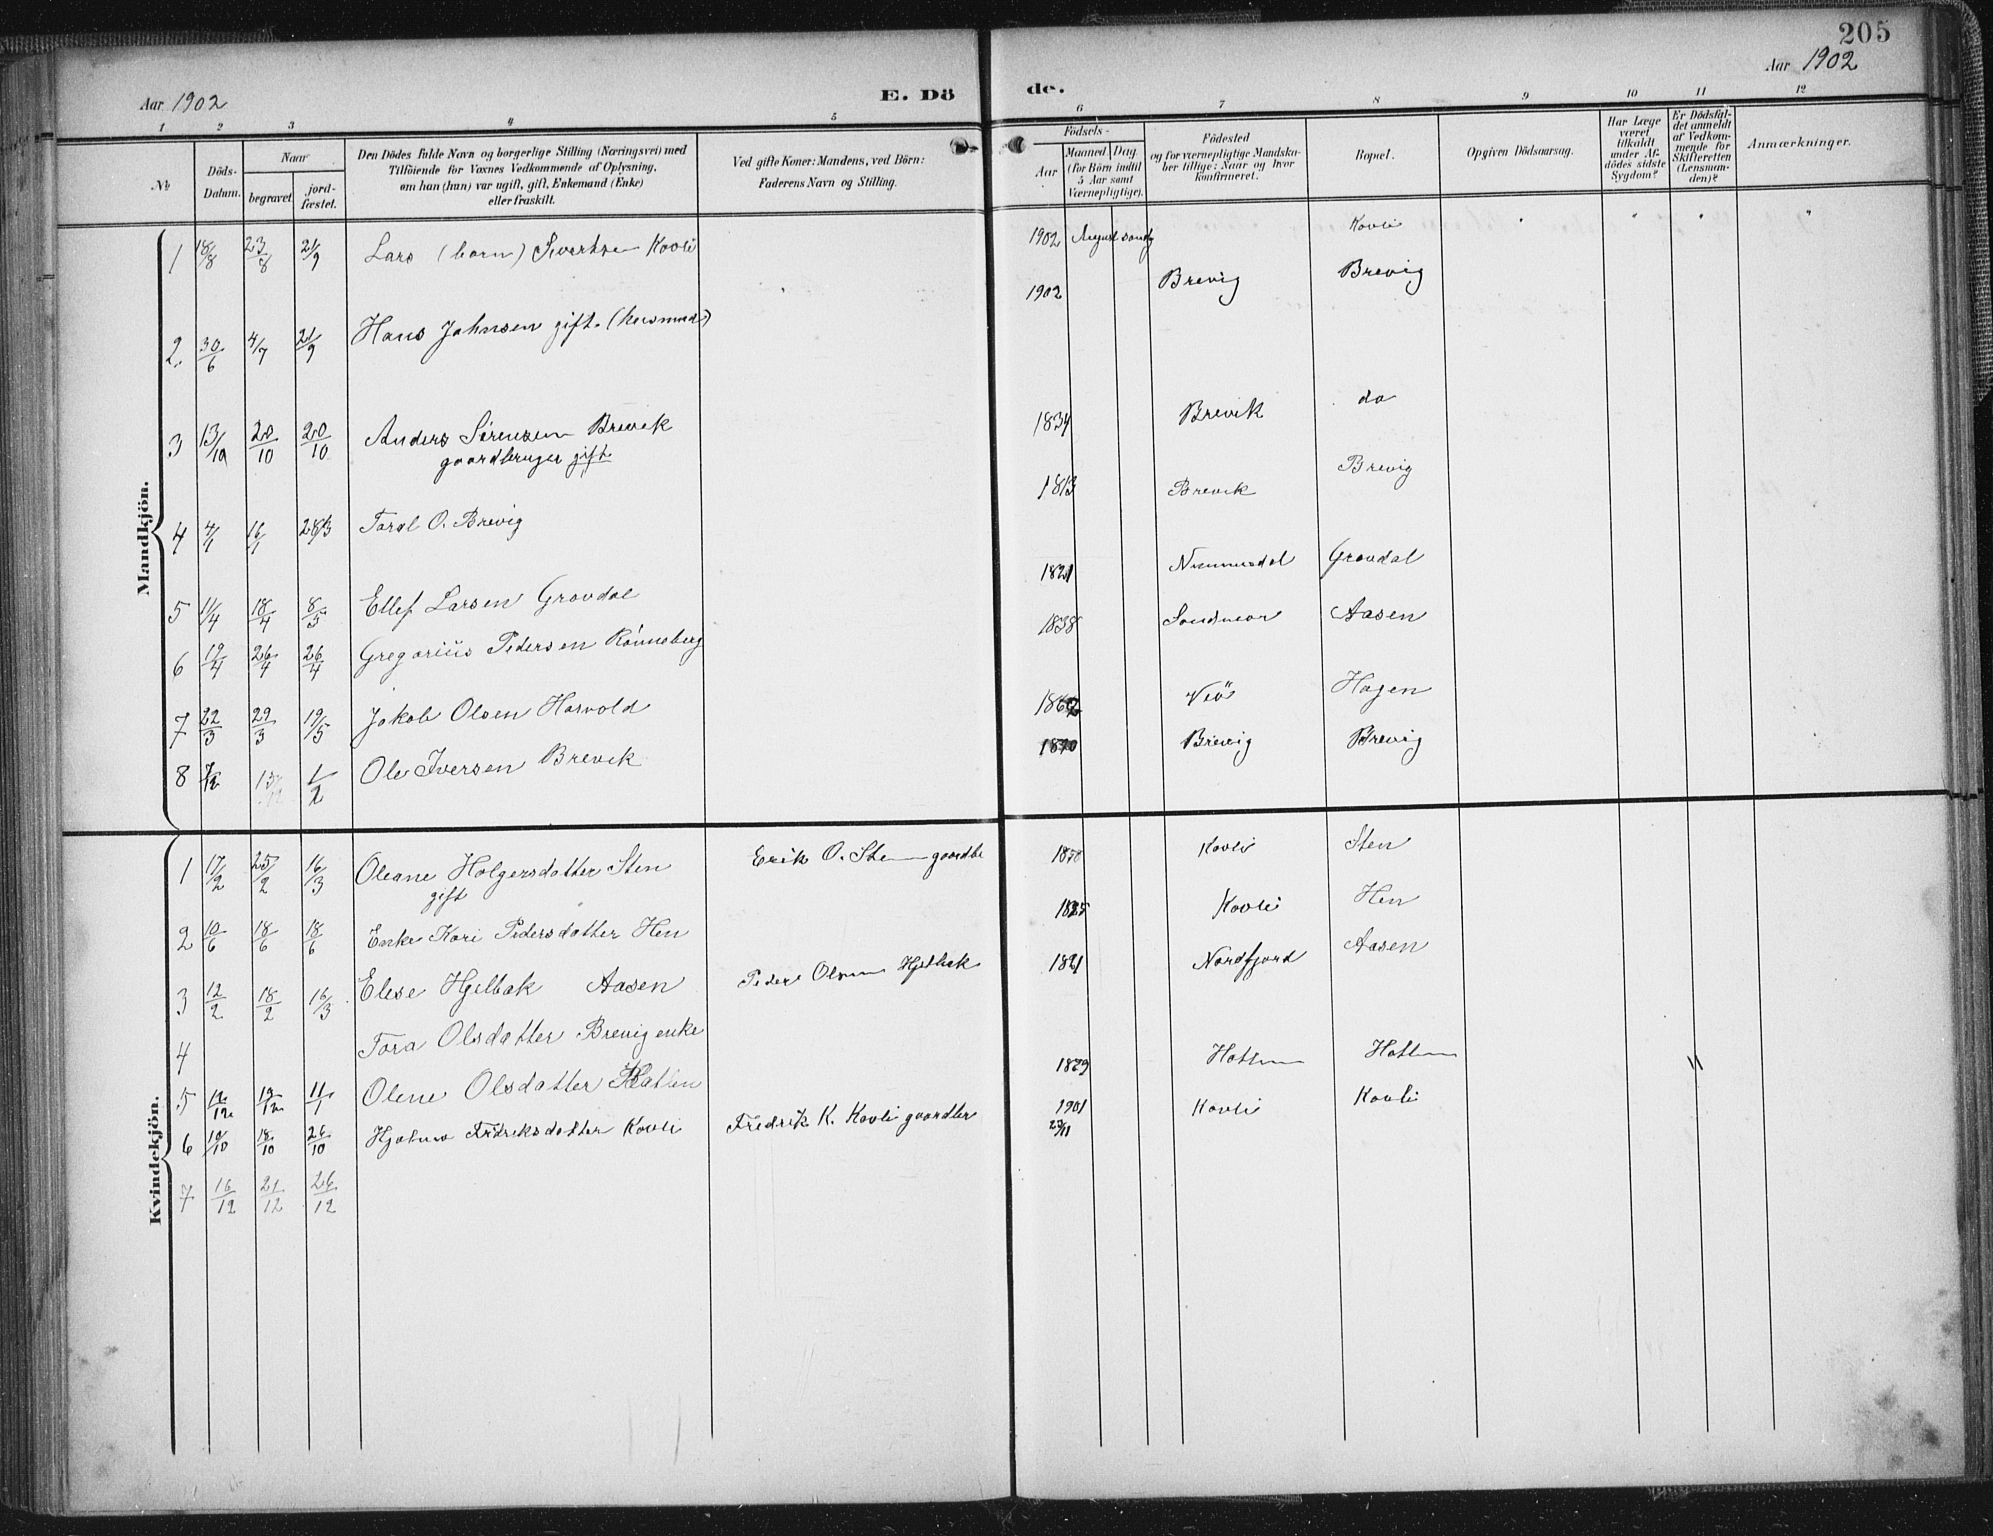 205
Aar 1902
Aar 1902
E. Dö de.
1 2 3 4 5 6 7 8 9 10 11 12
№
Döds-Datum.
Naar
begravet
jord-fæstet.
Den Dödes fulde Navn og borgerlige Stilling (Næringsvei) med
Tilföiende for Voxnes Vedkommende af Oplysning,
om han (hun) var ugift, gift, Enkemand (Enke)
eller fraskilt.
Ved gifte Koner: Mandens, ved Börn:
Faderens Navn og Stilling.
Födsels-
Aar
Maaned Dag
(for Börn indtil
5 Aar samt
Værnepligtige).
Födested
og for værnepligtige Mandska-
ber tillige: Naar og hvor
konfirmeret.
Bopæl.
Opgiven Dödsaarsag.
Har Læge
været
tilkaldt
under Af-
dödes sidste
Sygdom?
Er Dödsfal-
det anmeldt
af Vedkom-
mende for
Skifteretten
(Lensman-
den)?
Anmærkninger.
Mandkjön.
1 18/8 23/8 21/9 Lars (barn) Sivertsen Kovli 1902 August Kovli " " " "
2 30/6 4/7 21/9 Hans Johnsen gift. (husmand) 1902 Brevig Brevig
3 13/10 20/10 20/10 Anders Sørensen Brevik 1834 Brevik do
gaardbruger gift.
4 4/1 16/1 28/3 O. Brevig 1813 Brevik Brevig
5 11/4 18/4 8/5 Ellef Larsen Grovdal 1821 Grovdal
6 19/4 26/4 26/4 Gregorius Pedersen Rønneberg 1838 Søndmør Aasen
7 22/3 29/3 19/5 Jakob Olsen Horvold Veö Hagen
8 13/12 1/2 Ole Iversen Brevik 1870 Brevig Brevig
Kvindekjön.
1 17/2 25/2 16/3 Oleane Holgersdatter Sten Erik O. Sten gaardbr Kovli Sten
gift
2 10/6 18/6 18/6 Enke Kari Pedersdatter Hen Kovli Hen
3 12/2 18/2 16/3 Elese Hjelbak Aasen Peder Olsen Hjelbak 1821 Nordfjord Aasen
4 Tora Olsdatter Brevig enke
5 12/12 19/12 11/1 Olene Olsdatter 1829 "
6 10/10 18/10 26/10 Fredriksdatter Kovli Fredrik K. Kovli gaardbr 1901 Kovli Kovli
7 16/12 21/12 26/12